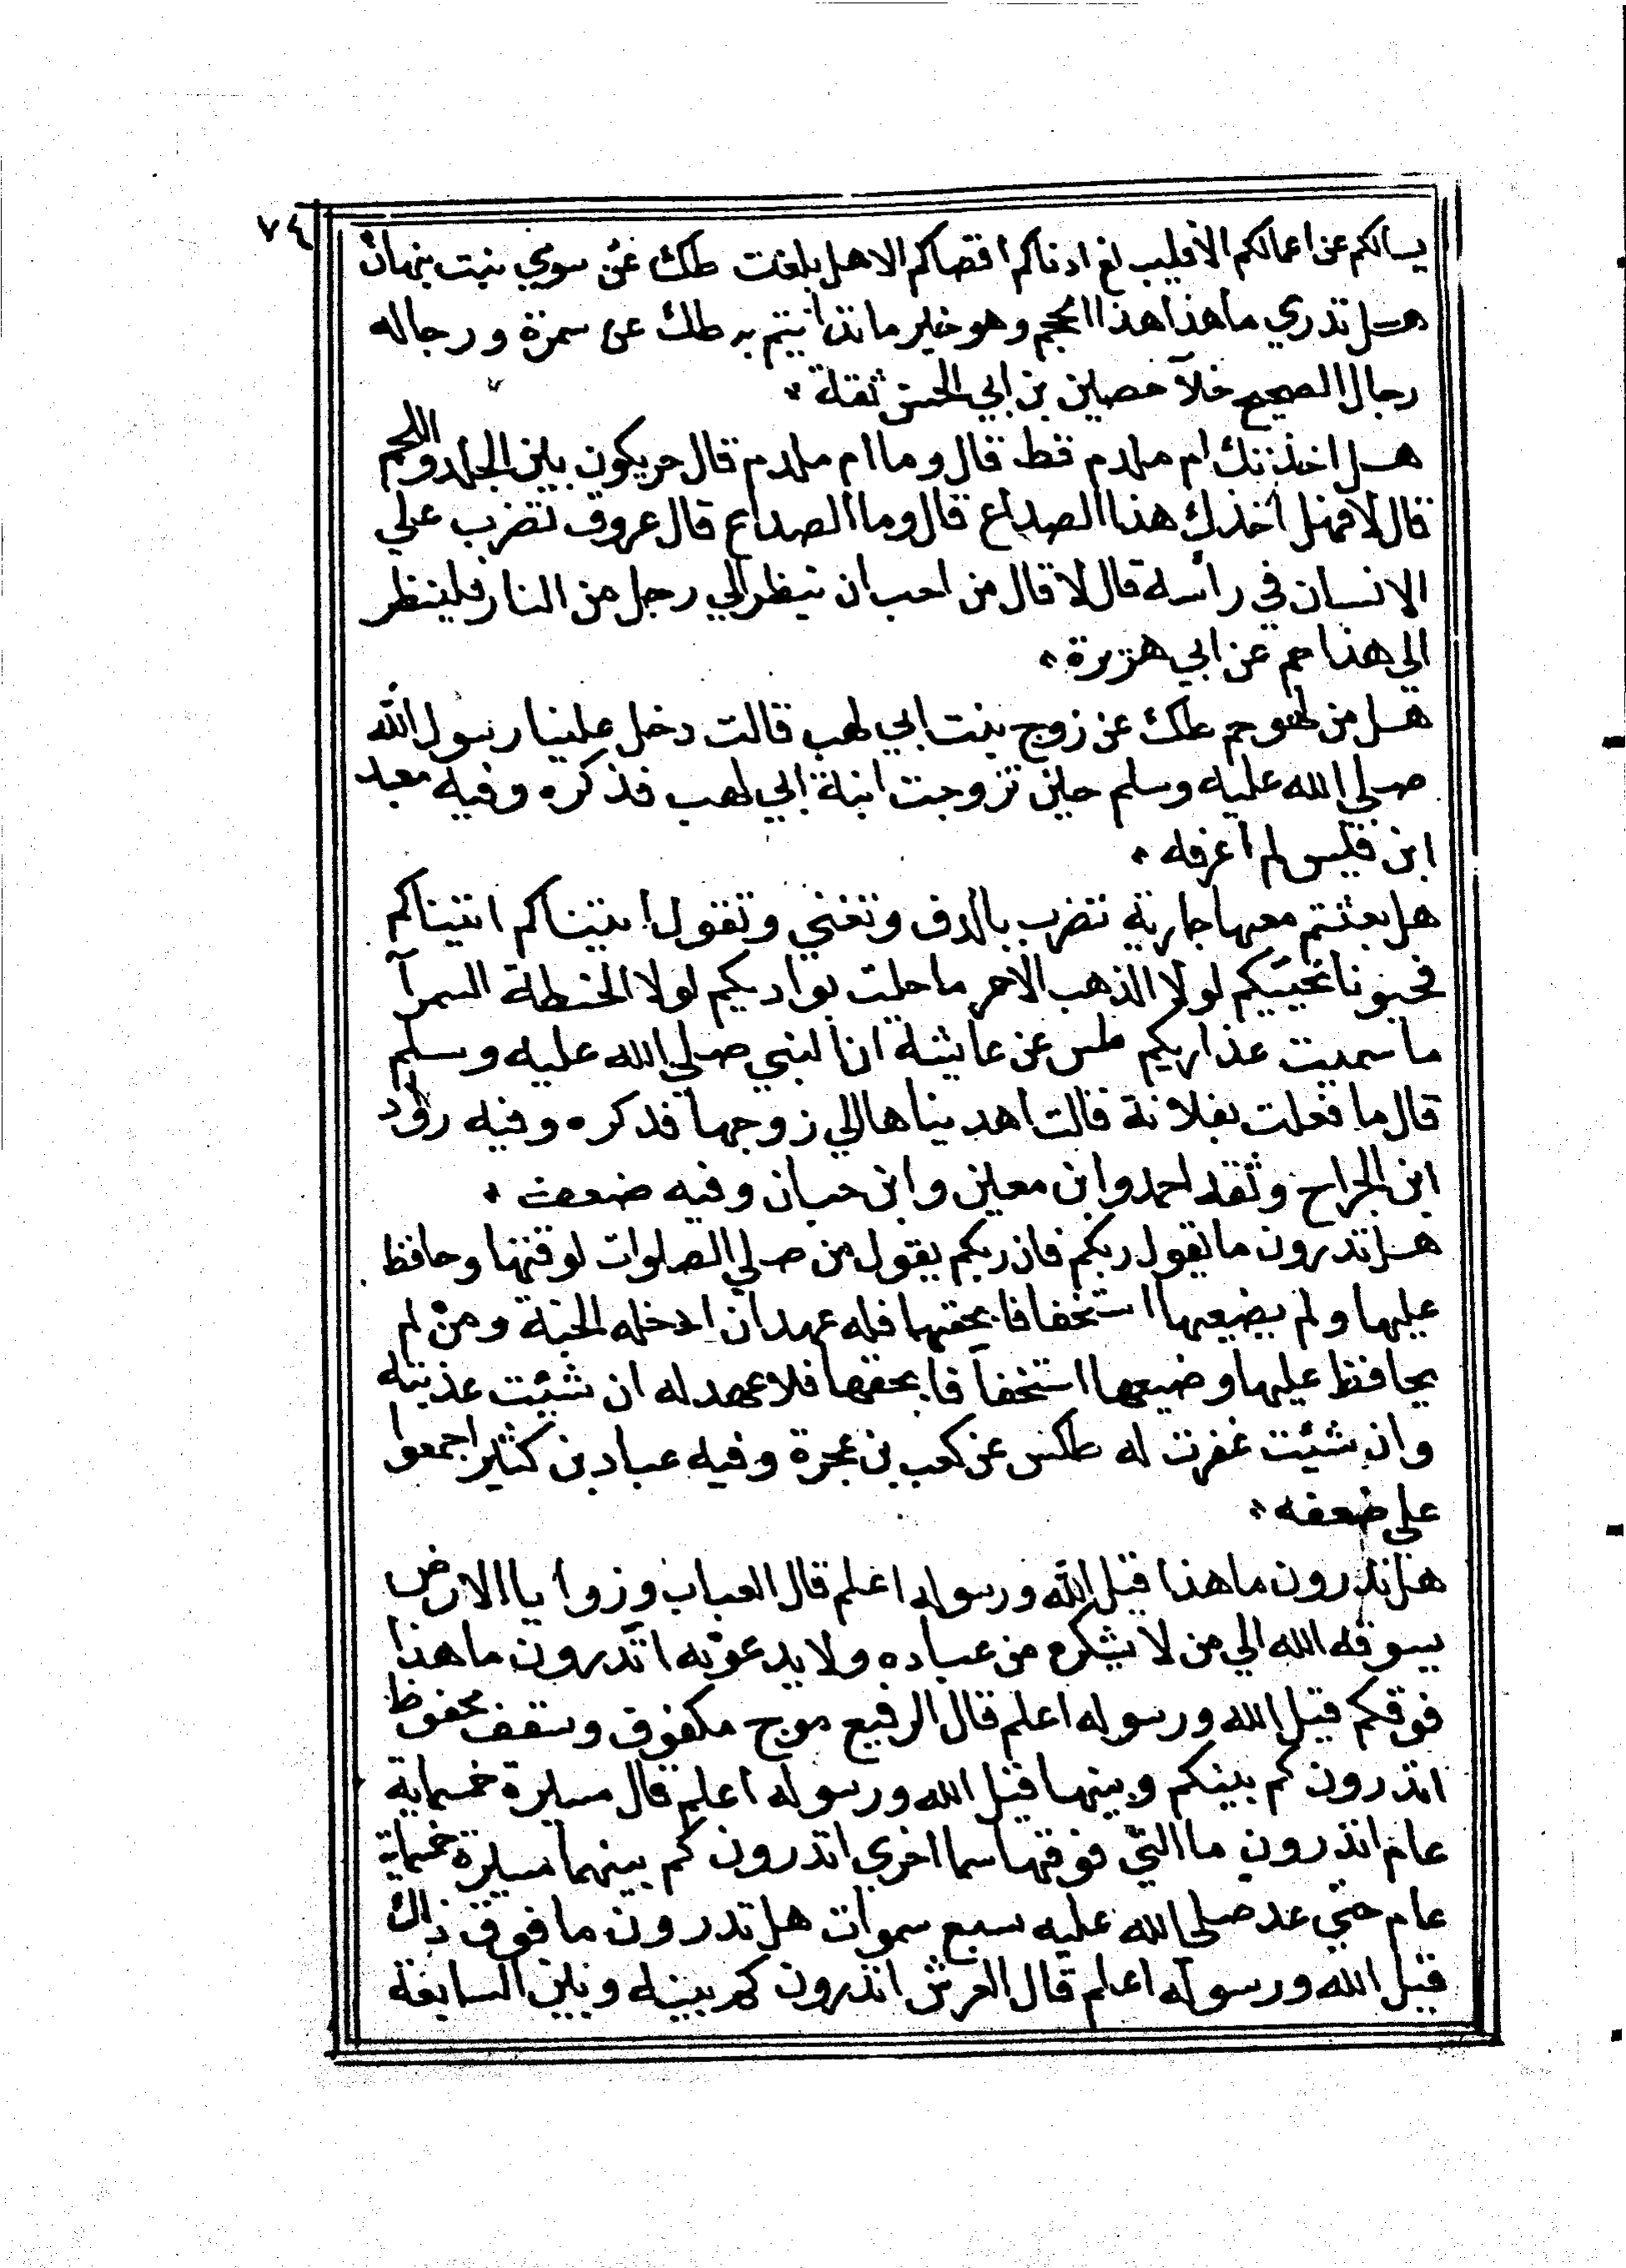 ٧٤
يسالكم عن اعمالكم الا فليبلغ ادناكم اقصاكم الا هل بلغت طك عن سري بنت نبهان
هل تدري ما هذا هذا المحجم وهو خير ما تداويتم به طك عن سمرة ورجاله
رجال الصحيح خلا حصين بن ابي الحسن ثقلة
هل اخذتك ام ملدم قط قال وما ام ملدم قال حر يكون بين الجلد واللحم
قال لا فهل اخذك هذا الصداع قال وما الصداع قال عروف تضرب علي
الانسان في رأسه قال لا قال من احب ان ينظر الي رجل من النار فلينظر
الي هذا حم عن ابي هريرة
هل من لهو حم طك عن زوج بنت ابي لهب قالت دخل علينا رسول الله
صلي الله عليه وسلم حين تزوجت ابنة ابي لهب فذكره وفيه معبد
ابن قيس لم اعرفه
هل بعثتم معها جارية تضرب بالدف وتغني وتقول اتيناكم اتيناكم
فحيونا نحييكم لولا الذهب الاحمر ما حلت بواديكم لولا الحنطة السمرآ
ما سمنت عذاريكم طس عن عايشة ان النبي صلي الله عليه وسلم
قال ما فعلت بفلانة قالت اهديناها الي زوجها فذكره وفيه رواد
ابن الجراح وثقه احمد وابن معين وابن حبان وفيه ضعف
هل تدرون ما يقول ربكم فان ربكم يقول من صلي الصلوات لوقتها وحافظ
عليها ولم يضيعها استخفافا بحقها فله عهد ان ادخله الجنة ومن لم
يحافظ عليها وضيعها استخفافا بحقها فلا عهد له ان شئت عذبته
وان شئت غفرت له طكس عن كعب بن عجرة وفيه عباد بن كثير اجمعوا
علي ضعفه
هل تدرون ما هذا قيل الله ورسوله اعلم قال العباب وزوايا الارض
يسوقه الله الي من لا يشكره من عباده ولا يدعونه اتدرون ما هذا
فوقكم قيل الله ورسوله اعلم قال الرفيع موج مكفوف وسقف محفوظ
اتدرون كم بينكم وبينها قيل الله ورسوله اعلم قال مسيرة خمسماية
عام اتدرون ما التي فوقها سما اخري اتدرون كم بينهما مسيرة خمسماية
عام حتي عد صلي الله عليه سبع سموات هل تدرون ما فوق ذلك
قيل الله ورسوله اعلم قال العرش اتدرون كم بينه وبين السابعة